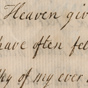 Heaven giv
have often fel
thy of my ever